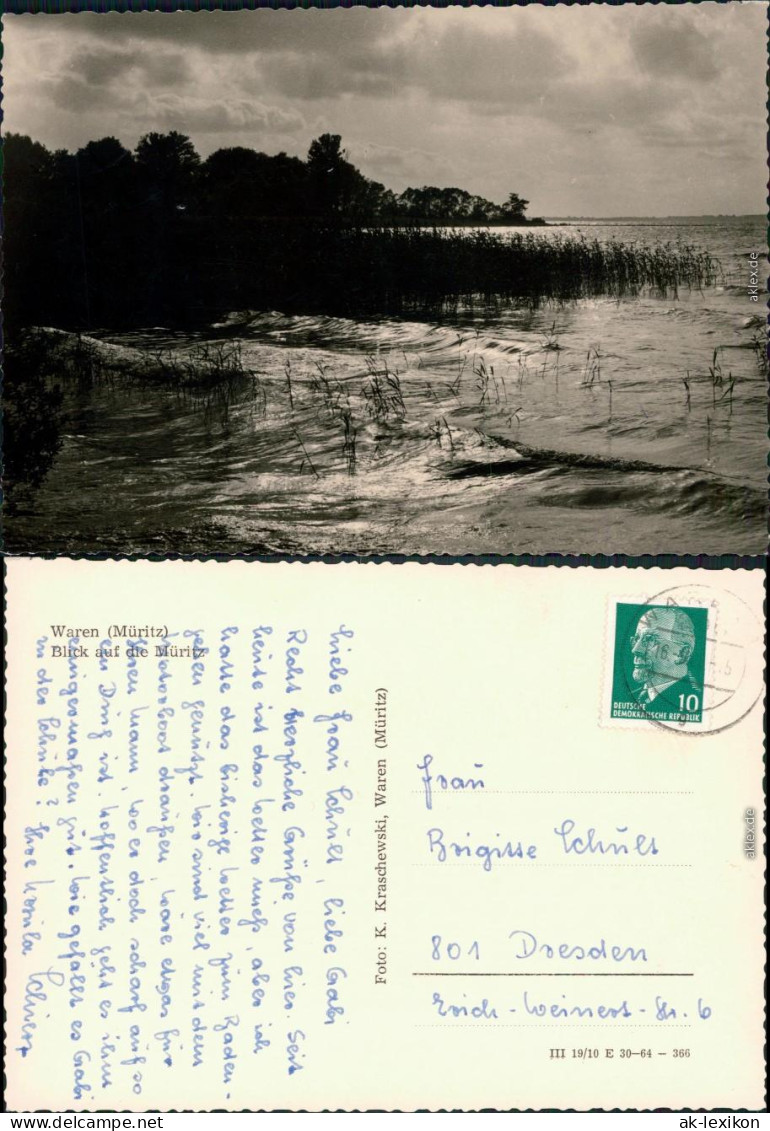 aklex.de
Waren (Müritz)
Blick auf die Müritz
Liebe Frau Schult, liebe Gabi
Recht herzliche Grüße von hier. Seit
heute ist das Wetter mieß, aber ich
hatte das bisherige Wetter zum Baden
gehen genützt. Wir sind viel mit dem
Motorboot draußen, wäre etwas für
Ihren Mann, wo er doch scharf auf so
ein Ding ist. Hoffentlich geht es ihm
einigermaßen gut. Wie gefällt es Gabi
in der Schule? Ihre Ursula
Foto: K. Kraschewski, Waren (Müritz)
DEUTSCHE
DEMOKRATISCHE REPUBLIK
10
Frau
Brigitte Schult
801 Dresden
Erich-Weinert-Str. 6
III 19/10 E 30—64 — 366
aklex.de
www.delcampe.net
ak-lexikon